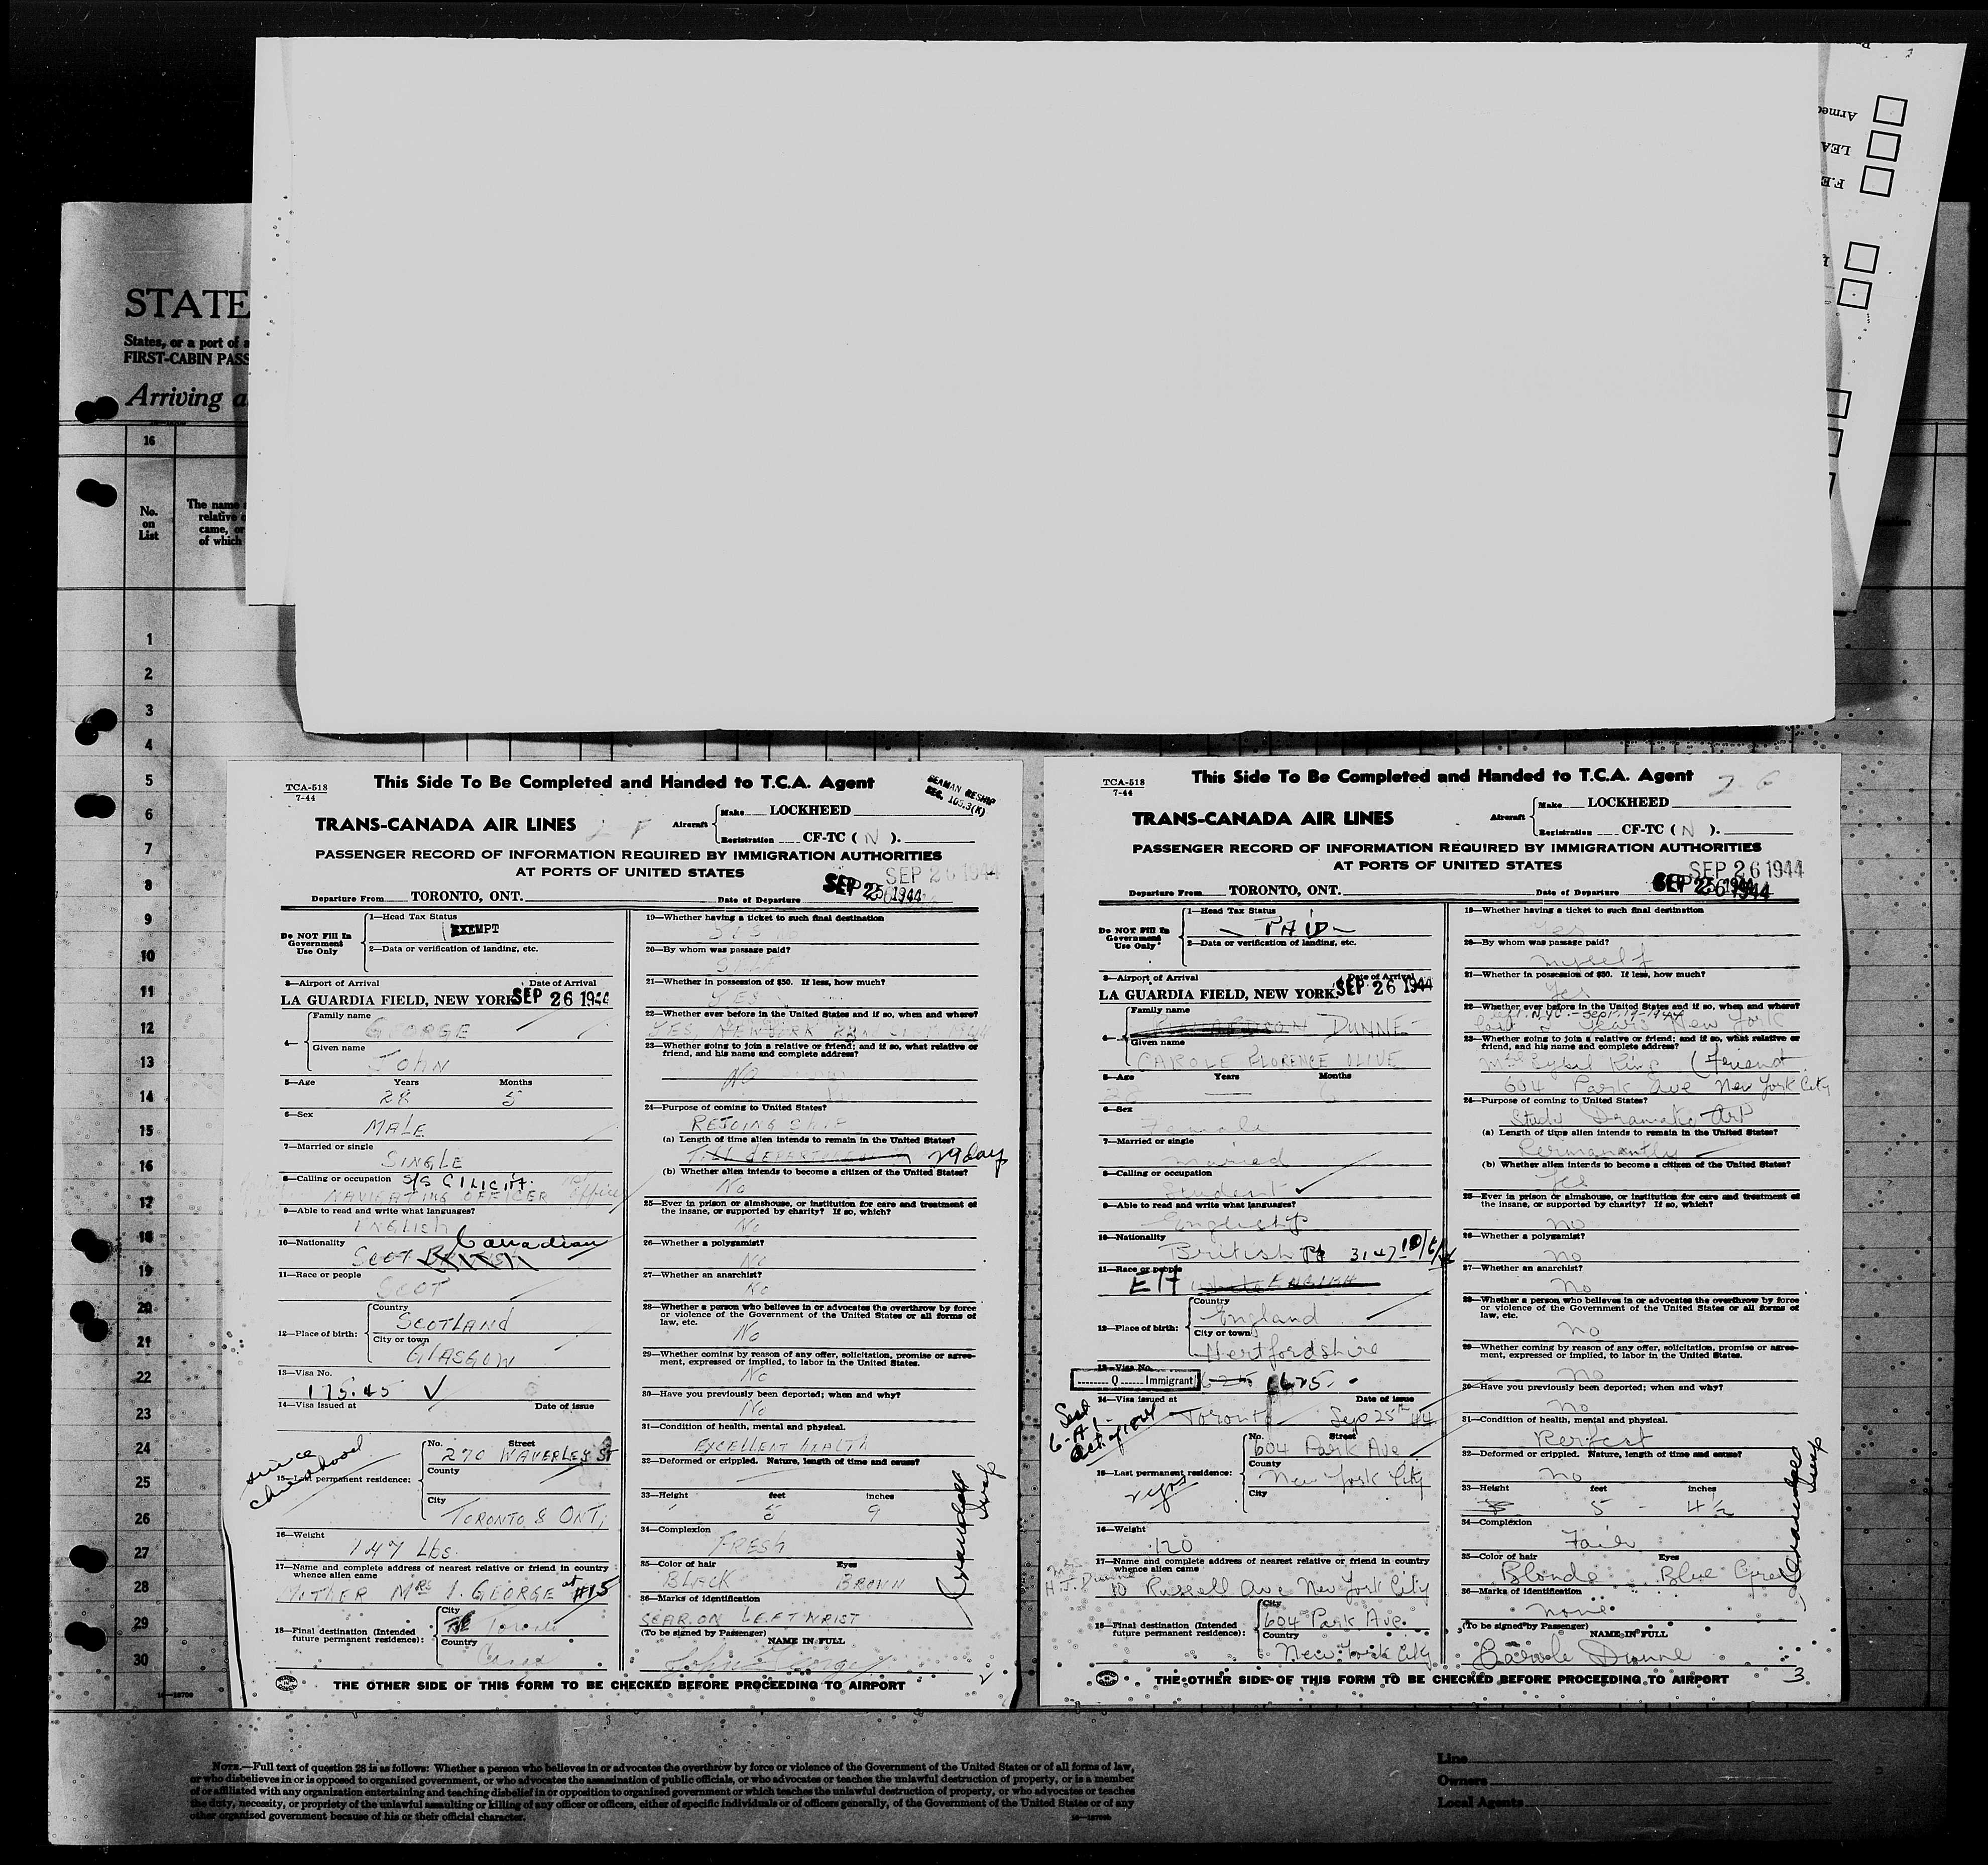 STATE
States, or a port of a
FIRST-CABIN PASS
Arriving a
16
No.
on
List
The name
relative
came, or
of which
Armed
LEA
F.E.
1
2
3
4
5
6
7
8
9
10
11
12
13
14
15
16
17
18
19
20
21
22
23
24
25
26
27
28
29
30
TCA-518
7-44
This Side To Be Completed and Handed to T.C.A. Agent
SEAMAN RESHIP
SEC. 105.3(K)
TRANS-CANADA AIR LINES
Aircraft
Make LOCKHEED
Registration CF-TC ( N ).
PASSENGER RECORD OF INFORMATION REQUIRED BY IMMIGRATION AUTHORITIES
AT PORTS OF UNITED STATES
SEP 26 1944
Departure From TORONTO, ONT. Date of Departure SEP 25 1944
Do NOT Fill In
Government
Use Only
1—Head Tax Status
EXEMPT
2—Data or verification of landing, etc.
3—Airport of Arrival Date of Arrival
LA GUARDIA FIELD, NEW YORK SEP 26 1944
4—
Family name
GEORGE
Given name
JOHN
5—Age Years Months
28 5
6—Sex
MALE
7—Married or single
SINGLE
8—Calling or occupation S/S CILICIA
NAVIGATING OFFICER
9—Able to read and write what languages?
ENGLISH
10—Nationality Canadian
SCOT BRITISH
11—Race or people
SCOT
12—Place of birth:
Country
SCOTLAND
City or town
GLASGOW
13—Visa No.
175.45 ✓
14—Visa issued at Date of issue
since
childhood
15—Last permanent residence:
No. Street
270 WAVERLEY ST
County
City
TORONTO 8 ONT.
16—Weight
147 Lbs.
17—Name and complete address of nearest relative or friend in country
whence alien came
MOTHER MRS J. GEORGE at #15
18—Final destination (Intended
future permanent residence):
City
Toronto
Country
19—Whether having a ticket to such final destination
20—By whom was passage paid?
SELF
21—Whether in possession of $50. If less, how much?
YES
22—Whether ever before in the United States and if so, when and where?
YES NEW YORK
23—Whether going to join a relative or friend; and if so, what relative or
friend, and his name and complete address?
NO
24—Purpose of coming to United States?
REJOING SHIP
(a) Length of time alien intends to remain in the United States?
TILL DEPARTURE 29 day
(b) Whether alien intends to become a citizen of the United States?
No
25—Ever in prison or almshouse, or institution for care and treatment of
the insane, or supported by charity? If so, which?
No
26—Whether a polygamist?
No
27—Whether an anarchist?
No
28—Whether a person who believes in or advocates the overthrow by force
or violence of the Government of the United States or all forms of
law, etc.
No
29—Whether coming by reason of any offer, solicitation, promise or agree-
ment, expressed or implied, to labor in the United States.
No
30—Have you previously been deported; when and why?
No
31—Condition of health, mental and physical.
EXCELLENT HEALTH
32—Deformed or crippled. Nature, length of time and cause?
33—Height feet inches
5 9
34—Complexion
FRESH
35—Color of hair Eyes
BLACK BROWN
36—Marks of identification
SCAR ON LEFT WRIST
(To be signed by Passenger)
NAME IN FULL
John George
THE OTHER SIDE OF THIS FORM TO BE CHECKED BEFORE PROCEEDING TO AIRPORT
2
TCA-518
7-44
This Side To Be Completed and Handed to T.C.A. Agent
2-G
TRANS-CANADA AIR LINES
Aircraft
Make LOCKHEED
Registration CF-TC ( N ).
PASSENGER RECORD OF INFORMATION REQUIRED BY IMMIGRATION AUTHORITIES
AT PORTS OF UNITED STATES
SEP 26 1944
Departure From TORONTO, ONT. Date of Departure SEP 26 1944
Do NOT Fill In
Government
Use Only
1—Head Tax Status
PAID
2—Data or verification of landing, etc.
3—Airport of Arrival Date of Arrival
LA GUARDIA FIELD, NEW YORK. SEP 26 1944
4—
Family name
RICHARDSON DUNNE
Given name
CAROLE FLORENCE OLIVE
5—Age Years Months
6—Sex
Female
7—Married or single
married
8—Calling or occupation
Student ✓
9—Able to read and write what languages?
English
10—Nationality
British
11—Race or people
ENGLISH
12—Place of birth:
Country
England
City or town
Hertfordshire
13—Visa No.
Q Immigrant 625
14—Visa issued at Date of issue
Toronto Sep 25th 44
15—Last permanent residence:
No. Street
604 Park Ave
County
New York City
City
16—Weight
120
17—Name and complete address of nearest relative or friend in country
whence alien came
H.J. Dunne
10 Russell Ave New York City
18—Final destination (Intended
future permanent residence):
City
604 Park Ave.
Country
New York City
19—Whether having a ticket to such final destination
Yes
20—By whom was passage paid?
myself
21—Whether in possession of $50. If less, how much?
Yes
22—Whether ever before in the United States and if so, when and where?
N.Y.C. - Sept. 19-1944
past 2 years New York
23—Whether going to join a relative or friend; and if so, what relative or
friend, and his name and complete address?
Mrs Sybil King (Friend
604 Park Ave New York City
24—Purpose of coming to United States?
Study Dramatic Art
(a) Length of time alien intends to remain in the United States?
Permanantly
(b) Whether alien intends to become a citizen of the United States?
Yes
25—Ever in prison or almshouse, or institution for care and treatment of
the insane, or supported by charity? If so, which?
no
26—Whether a polygamist?
no
27—Whether an anarchist?
no
28—Whether a person who believes in or advocates the overthrow by force
or violence of the Government of the United States or all forms of
law, etc.
no
29—Whether coming by reason of any offer, solicitation, promise or agree-
ment, expressed or implied, to labor in the United States.
no
30—Have you previously been deported; when and why?
no
31—Condition of health, mental and physical.
Perfect
32—Deformed or crippled. Nature, length of time and cause?
no
33—Height feet inches
5 - 4½
34—Complexion
Fair
35—Color of hair Eyes
Blonde Blue Grey
36—Marks of identification
none
(To be signed by Passenger)
NAME IN FULL
Carole Dunne
THE OTHER SIDE OF THIS FORM TO BE CHECKED BEFORE PROCEEDING TO AIRPORT
3
NOTE.—Full text of question 28 is as follows: Whether a person who believes in or advocates the overthrow by force or violence of the Government of the United States or of all forms of law,
or who disbelieves in or is opposed to organized government, or who advocates the assassination of public officials, or who advocates or teaches the unlawful destruction of property, or is a member
of or affiliated with any organization entertaining and teaching disbelief in or opposition to organized government or which teaches the unlawful destruction of property, or who advocates or teaches
the duty, necessity, or propriety of the unlawful assaulting or killing of any officer or officers, either of specific individuals or of officers generally, of the Government of the United States or of any
other organized government because of his or their official character.
Line
Owners
Local Agents